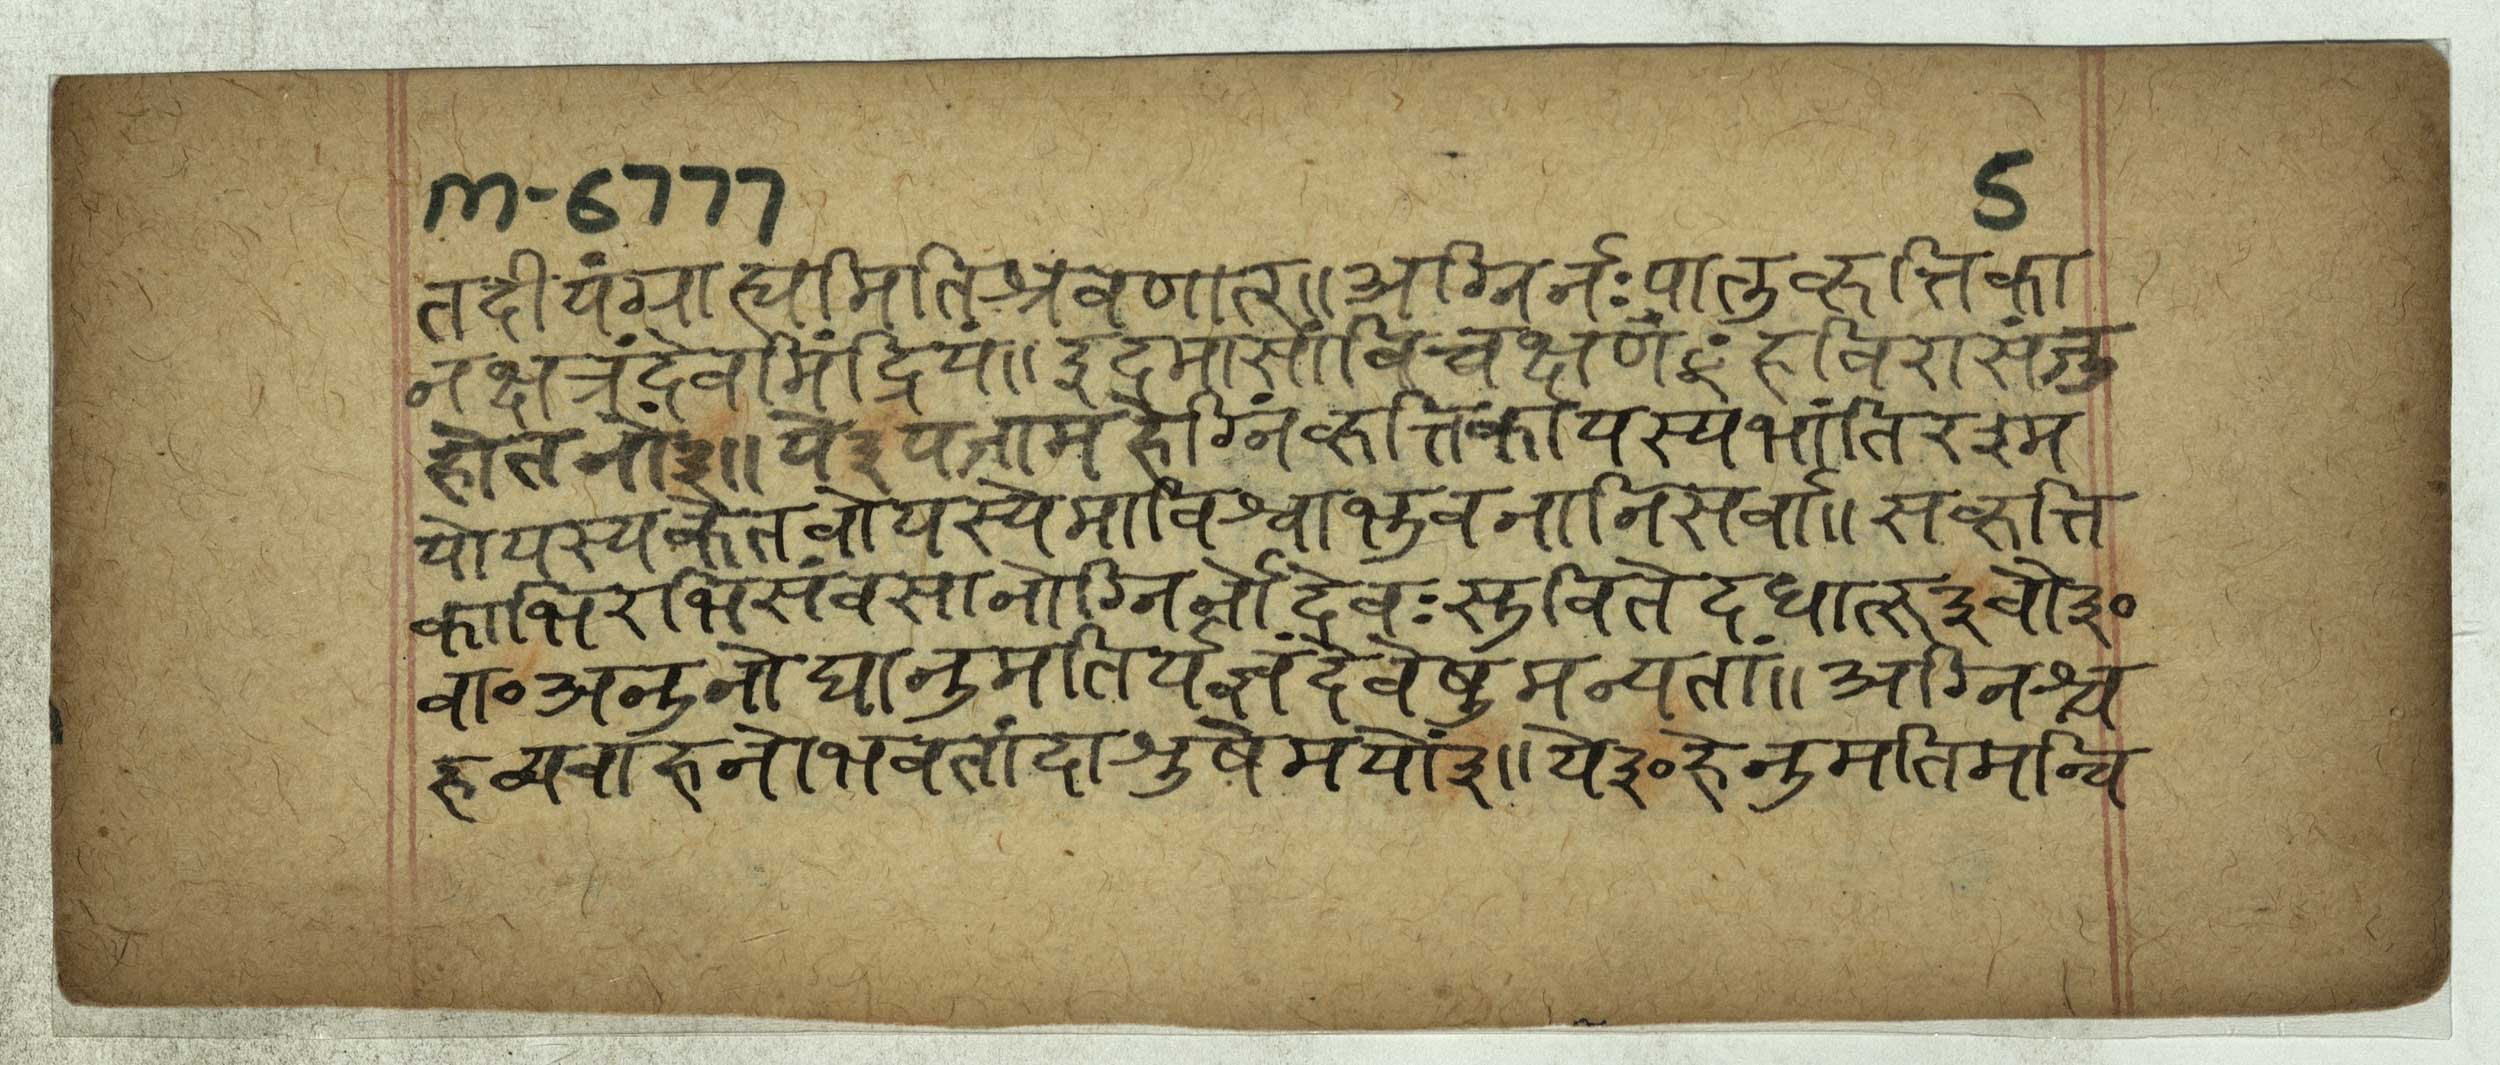 m-6777
5
तदीयंग्राह्यमितिश्रवणात्।।अग्निर्नःपातुकृत्तिका
नक्षत्रंदेवमिंद्रियं।।इदमासांविचक्षणंꣳहविरासंजु
होतनों३।।ये३यजामहेग्निंकृत्तिकायस्यभांतिरश्म
योयस्यकेतवोयस्येमाविश्वाभुवनानिसर्वा।।सकृत्ति
काभिरभिसंवसानोग्निर्नोदेवःसुवितेदधातू३वो३०
वा०अनुनोद्यानुमतिर्यज्ञंदेवेषुमन्यतां।।अग्निश्च
हव्यवाहनोभवतांदाशुषेमयों३।।ये३०हेनुमतिमन्वि